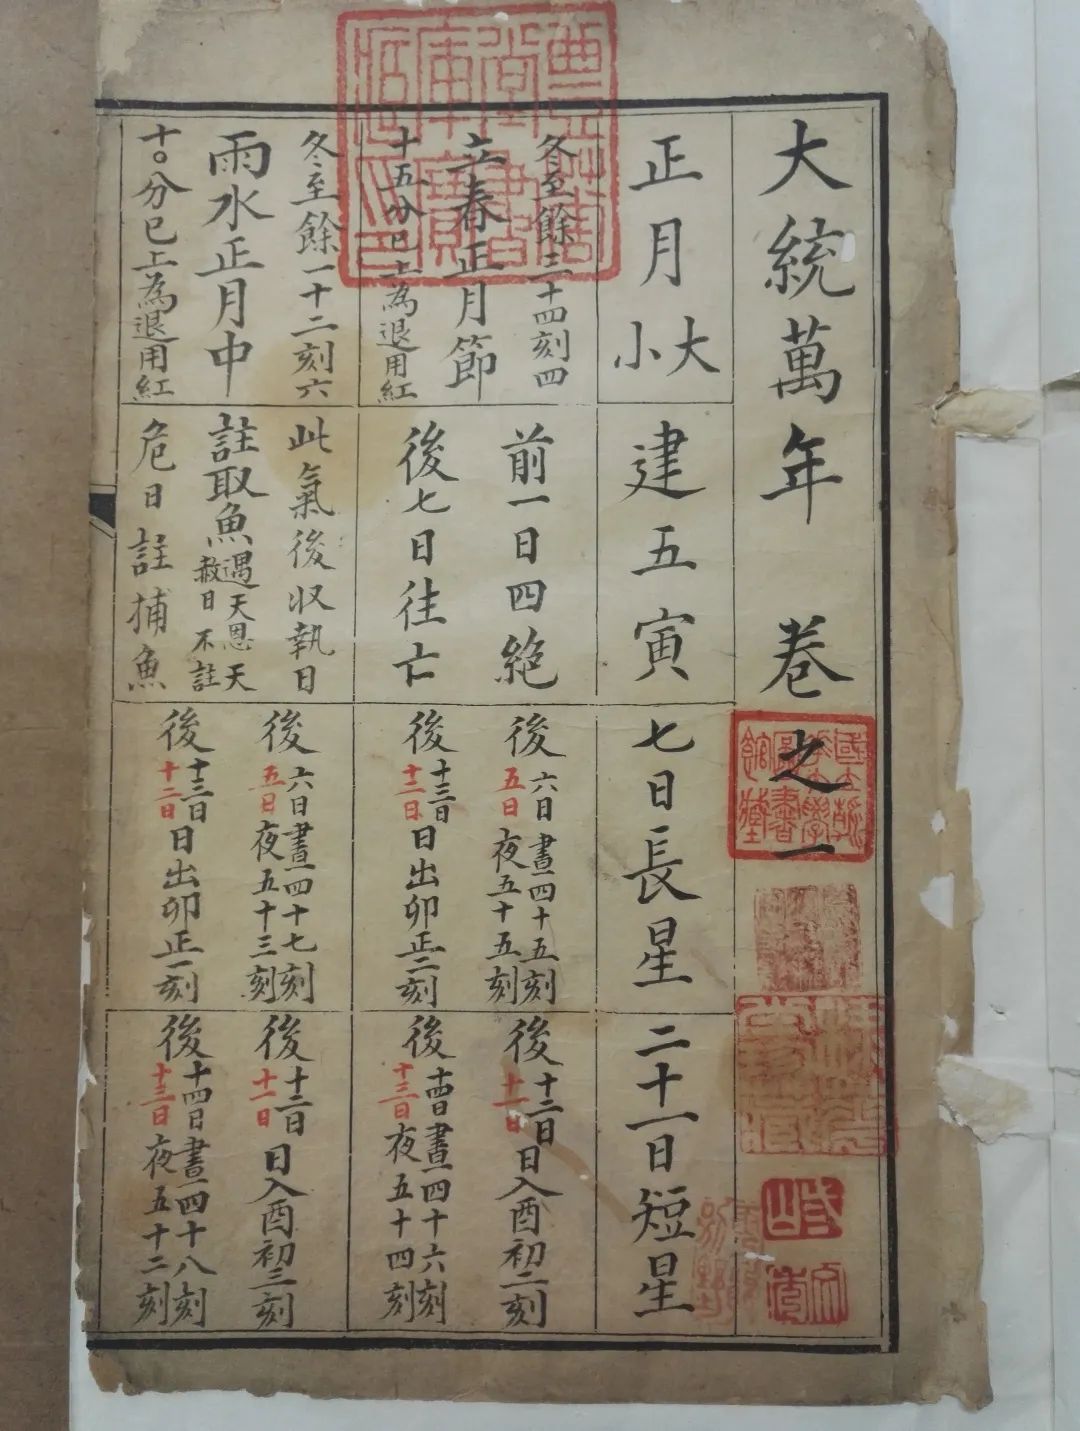 大統萬年 卷之一
正月大小
建五寅
七日長星
二十一日短星
冬至餘三十四刻四
立春正月節
十五分已上為退用紅
前一日四絶
後七日往亡
後六日晝四十五刻
五日夜五十五刻
後十三日日出卯正二刻
十二日
後十二日日入酉初二刻
十一日
後十四日晝四十六刻
十三日夜五十四刻
冬至餘一十二刻六
雨水正月中
十〇分已上為退用紅
此氣後收執日
註取魚遇天恩天
赦日不註
危日註捕魚
後六日晝四十七刻
五日夜五十三刻
後十三日日出卯正一刻
十二日
後十二日日入酉初三刻
十一日
後十四日晝四十八刻
十三日夜五十二刻